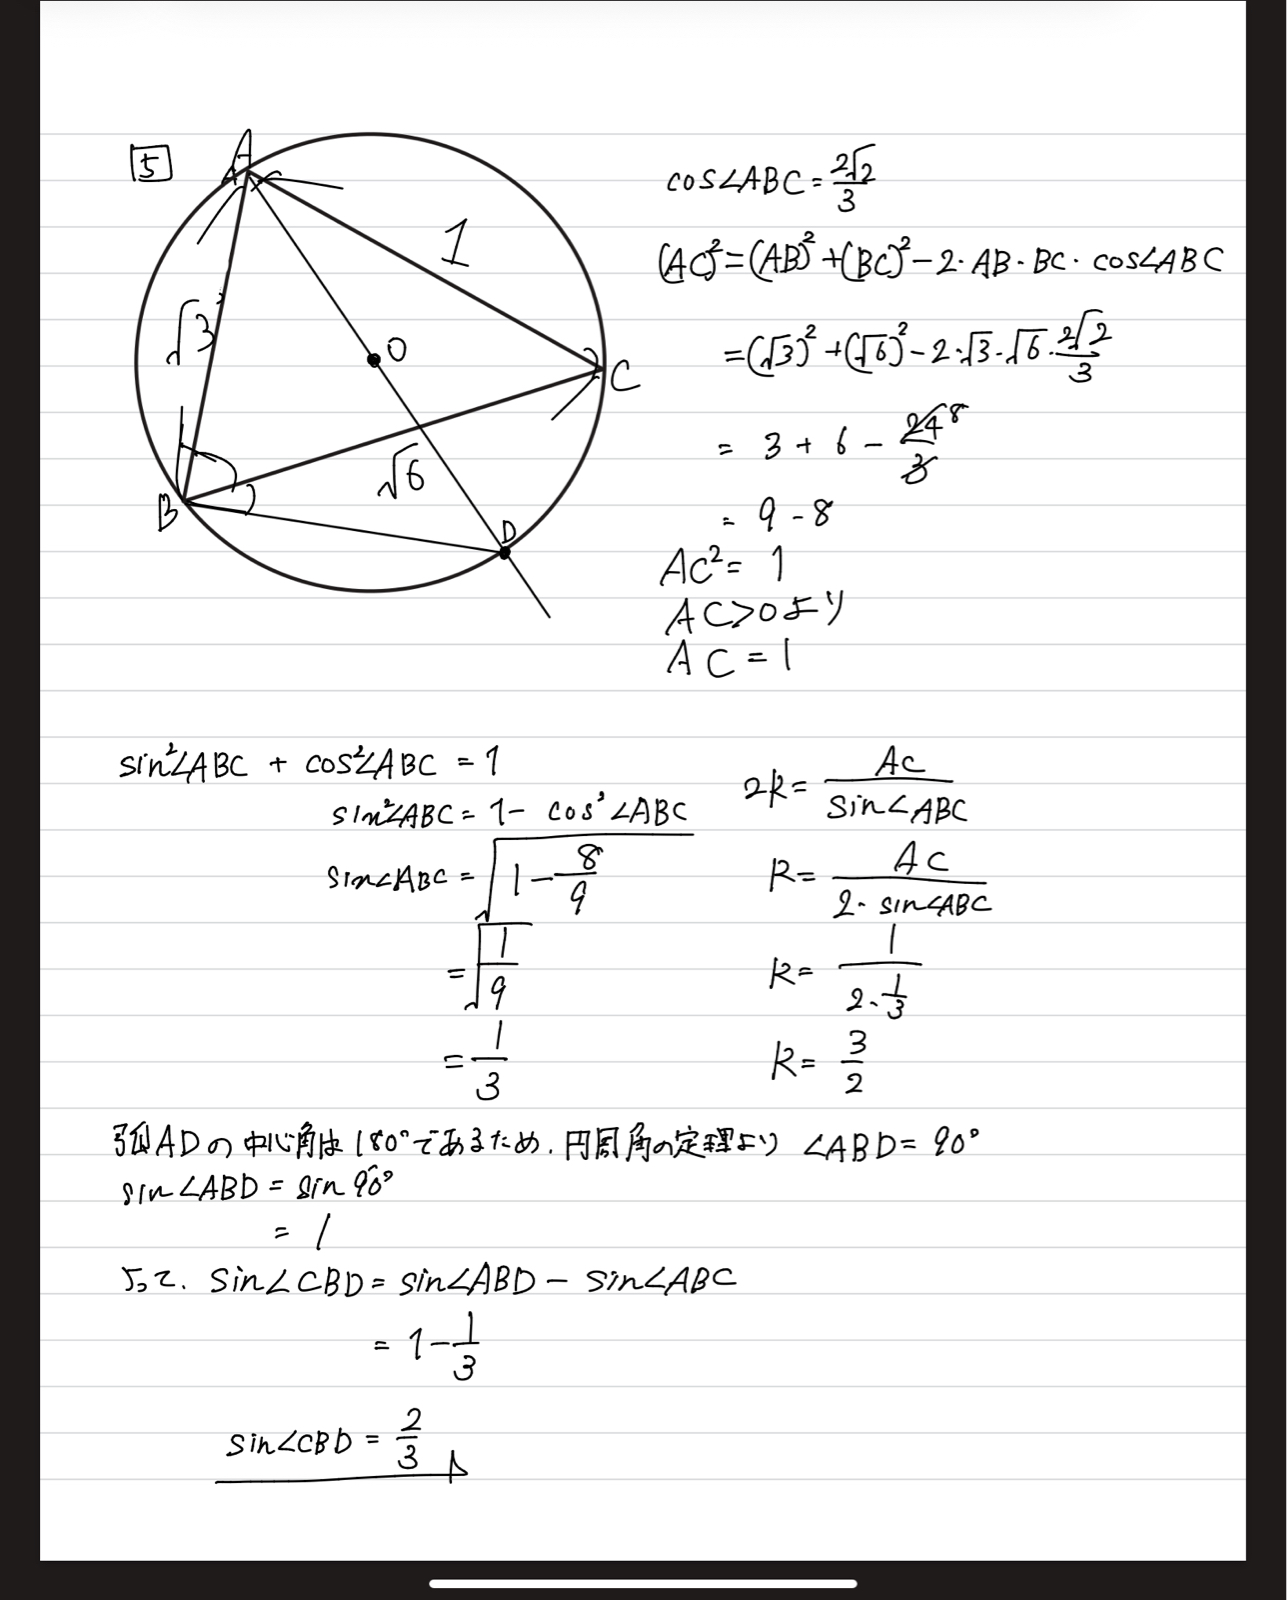 5
A
1
O
√3
C
√6
B
D
cos∠ABC = 2√2/3
(AC)² = (AB)² + (BC)² - 2・AB・BC・cos∠ABC
= (√3)² + (√6)² - 2・√3・√6・2√2/3
= 3 + 6 - 24/3 8
= 9 - 8
AC² = 1
AC>0より
AC = 1
sin²∠ABC + cos²∠ABC = 1
sin²∠ABC = 1 - cos²∠ABC
sin∠ABC = √(1 - 8/9)
= √(1/9)
= 1/3
2R = AC/sin∠ABC
R = AC/(2・sin∠ABC)
R = 1/(2・1/3)
R = 3/2
弧ADの中心角は180°であるため、円周角の定理より ∠ABD = 90°
sin∠ABD = sin 90°
= 1
よって、sin∠CBD = sin∠ABD - sin∠ABC
= 1 - 1/3
sin∠CBD = 2/3